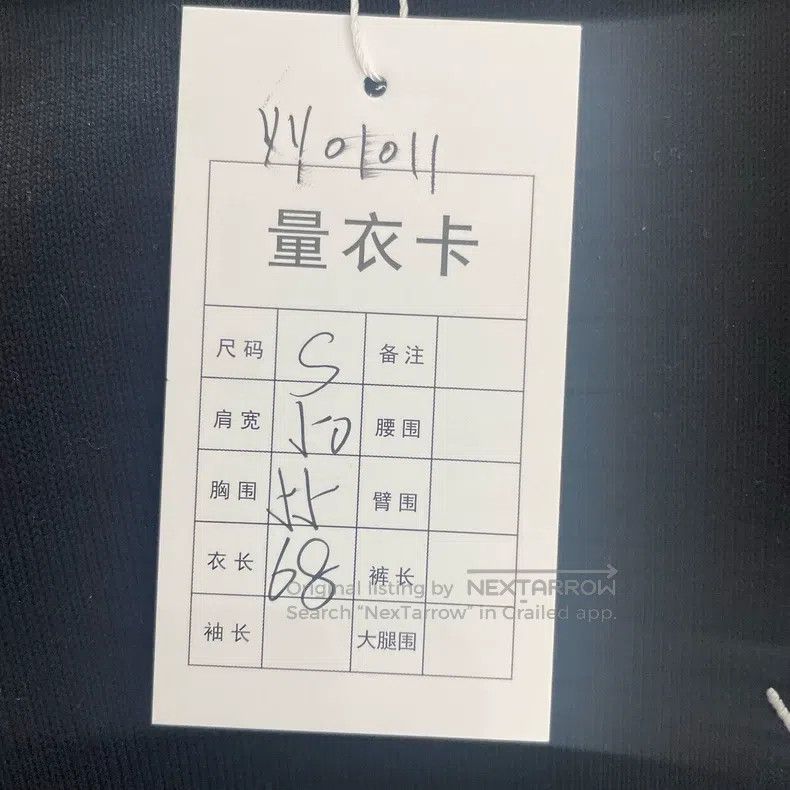 YY01011
量衣卡
尺码 S 备注
肩宽 50 腰围
胸围 55 臂围
衣长 68 裤长
袖长 大腿围
Original listing by NEXTARROW
Search "NexTarrow" in Grailed app.